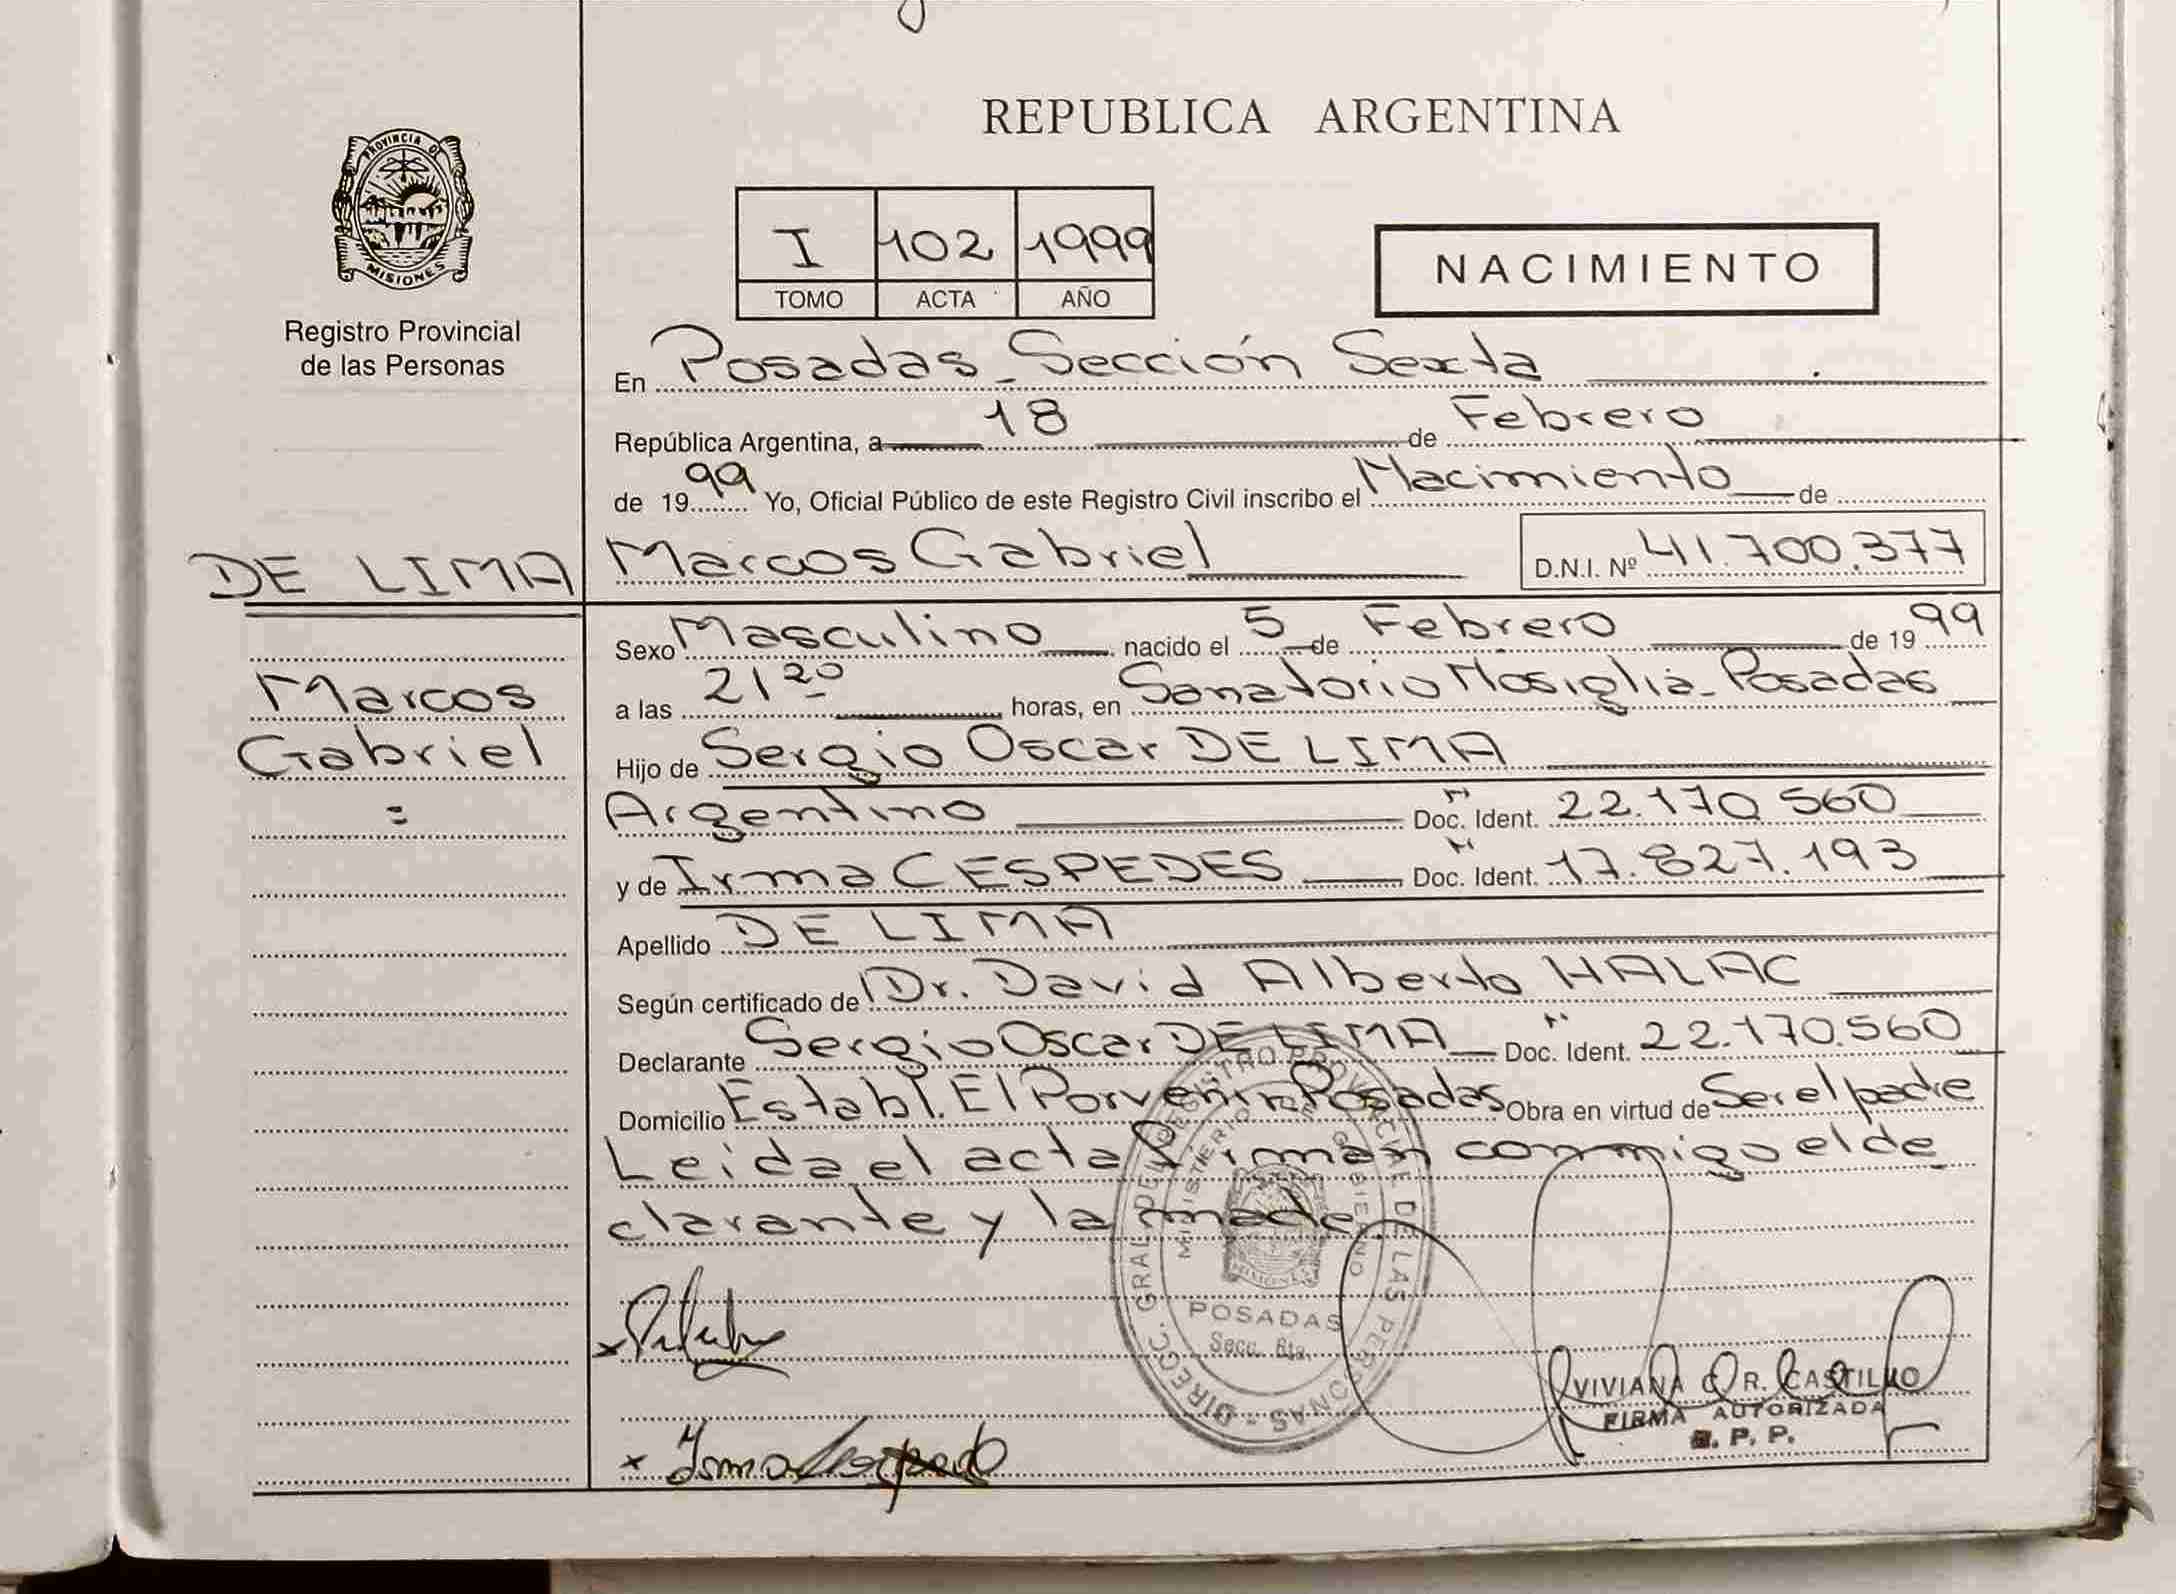 REPUBLICA ARGENTINA
PROVINCIA DE
MISIONES
Registro Provincial
de las Personas
I 102 1999
TOMO ACTA AÑO
NACIMIENTO
En Posadas - Sección Sexta
República Argentina, a 18 de Febrero
de 1999 Yo, Oficial Público de este Registro Civil inscribo el Nacimiento de
DE LIMA Marcos Gabriel D.N.I. Nº 41.700.377
Sexo Masculino nacido el 5 de Febrero de 1999
Marcos a las 21 20 horas, en Sanatorio Mosiglia - Posadas
Gabriel Hijo de Sergio Oscar DE LIMA
= Argentino Doc. Ident. 22.170.560
y de Irma CESPEDES Doc. Ident. 17.827.193
Apellido DE LIMA
Según certificado de Dr. David Alberto HALAC
Declarante Sergio Oscar DE LIMA Doc. Ident. 22.170.560
Domicilio Establ. El Porvenir Posadas Obra en virtud de Ser el padre
Leida el acta firman conmigo el de
clarante y la madre
DIRECC. GRAL. DEL REGISTRO PROVINCIAL DE LAS PERSONAS
MINISTERIO DE GOBIERNO
MISIONES
POSADAS
Secc. 6ta.
VIVIANA C. R. CASTILLO
FIRMA AUTORIZADA
R. P. P.
x
x Irma Cespedes